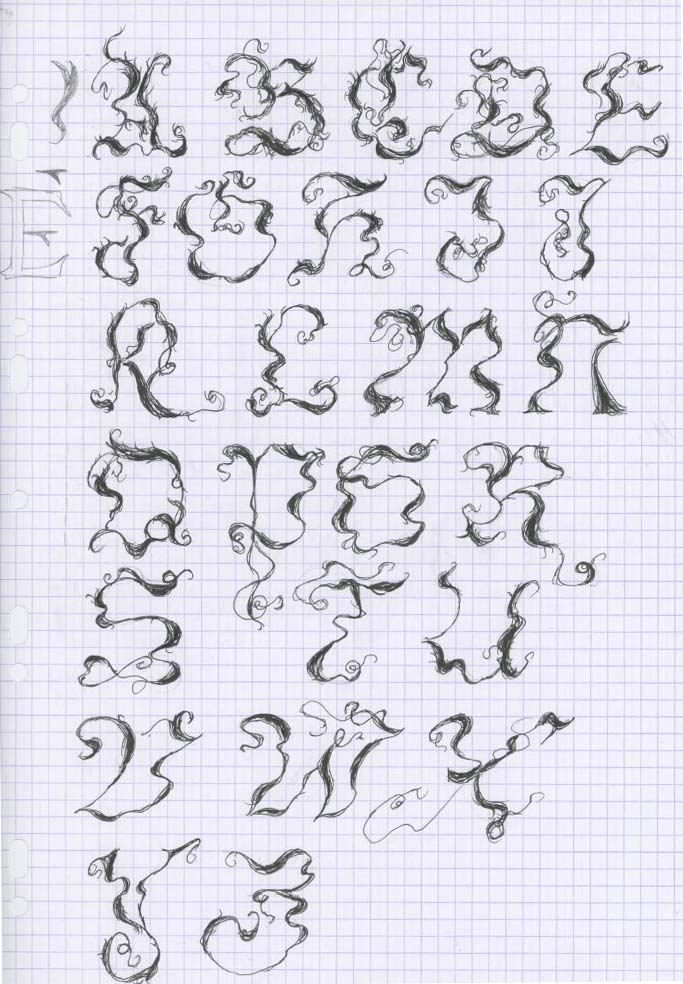 A B C D E
E
F G H I J
K L M N
O P Q R
S T U
V W X
Y Z